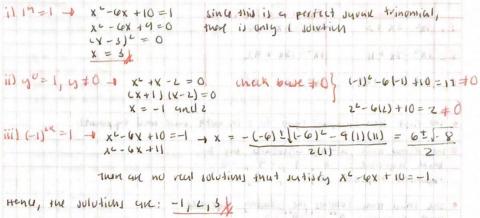 i) 1ⁿ = 1 → x² - 6x + 10 = 1 since this is a perfect square trinomial,
x² - 6x + 9 = 0 there is only 1 solution
(x - 3)² = 0
x = 3
ii) y⁰ = 1, y ≠ 0 → x² + x - 2 = 0 check base ≠ 0 } (-1)² - 6(-1) + 10 = 17 ≠ 0
(x + 1)(x - 2) = 0
x = -1 and 2 2² - 6(2) + 10 = 2 ≠ 0
iii) (-1)²ᵏ = 1 → x² - 6x + 10 = -1 → x = -(-6) ± √(-6)² - 4(1)(11) / 2(1) = 6 ± √-8 / 2
x² - 6x + 11
There are no real solutions that satisfy x² - 6x + 10 = -1.
Hence, the solutions are: -1, 2, 3